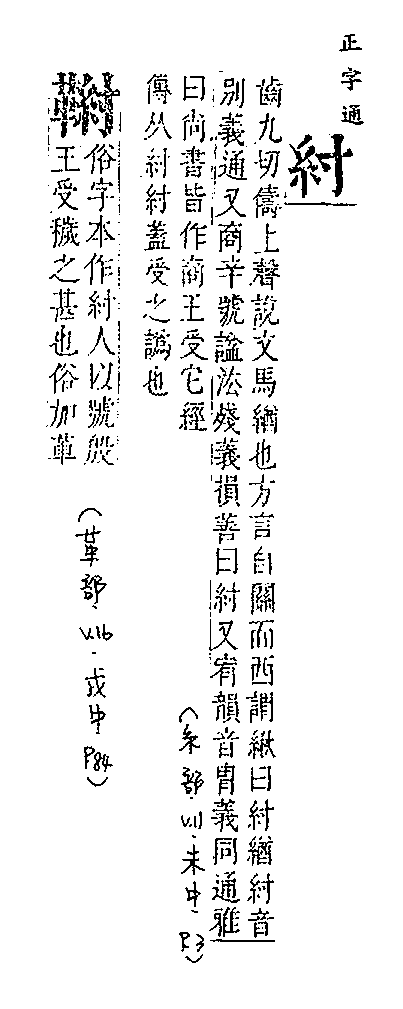 正字通
紂
齒九切儔上聲說文馬緧也方言自關而西謂緧曰紂緧紂音
別義通又商辛號諡法殘義損善曰紂又宥韻音胄義同通雅
曰尚書皆作商王受它經
傳从紂紂蓋受之譌也
(糸部.V.11.未中.P.3)
俗字本作紂人以號殷
王受穢之甚也俗加革
(革部.V.16.戌中.P84)